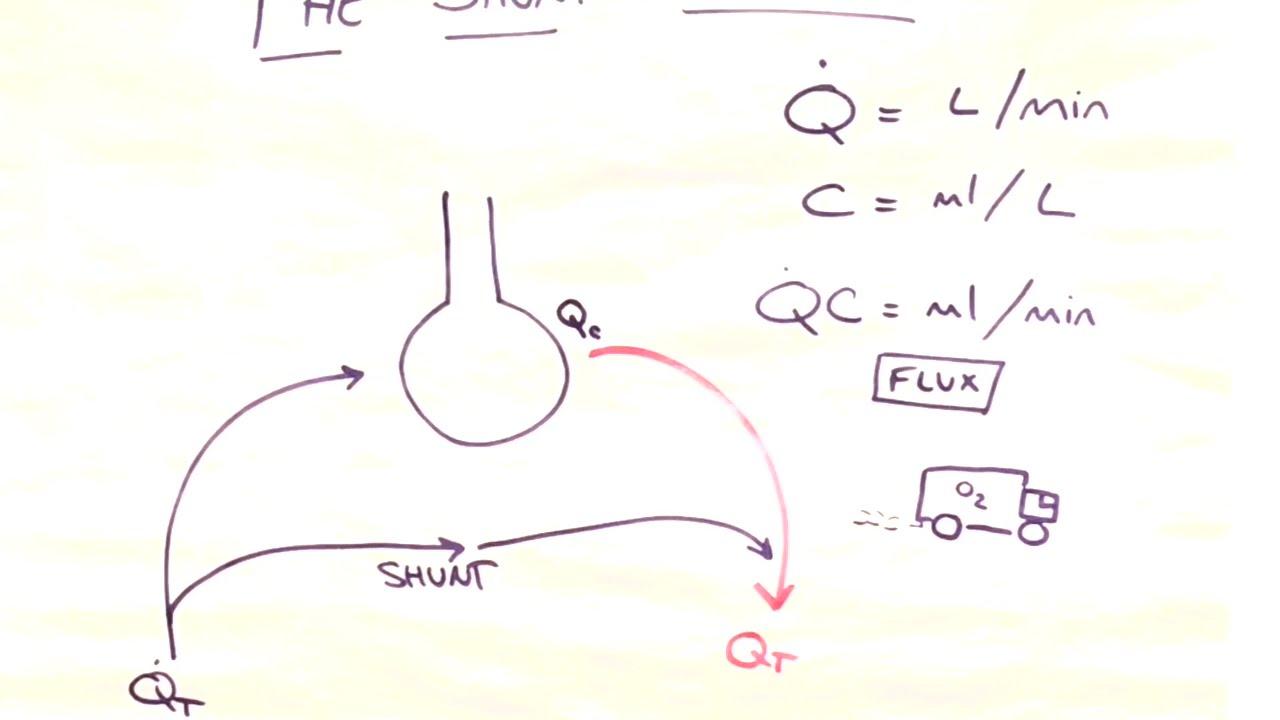 THE SHUNT
Q̇ = L/min
C = ml/L
Q̇C = ml/min
FLUX
O₂
Qc
SHUNT
Q̇T
QT